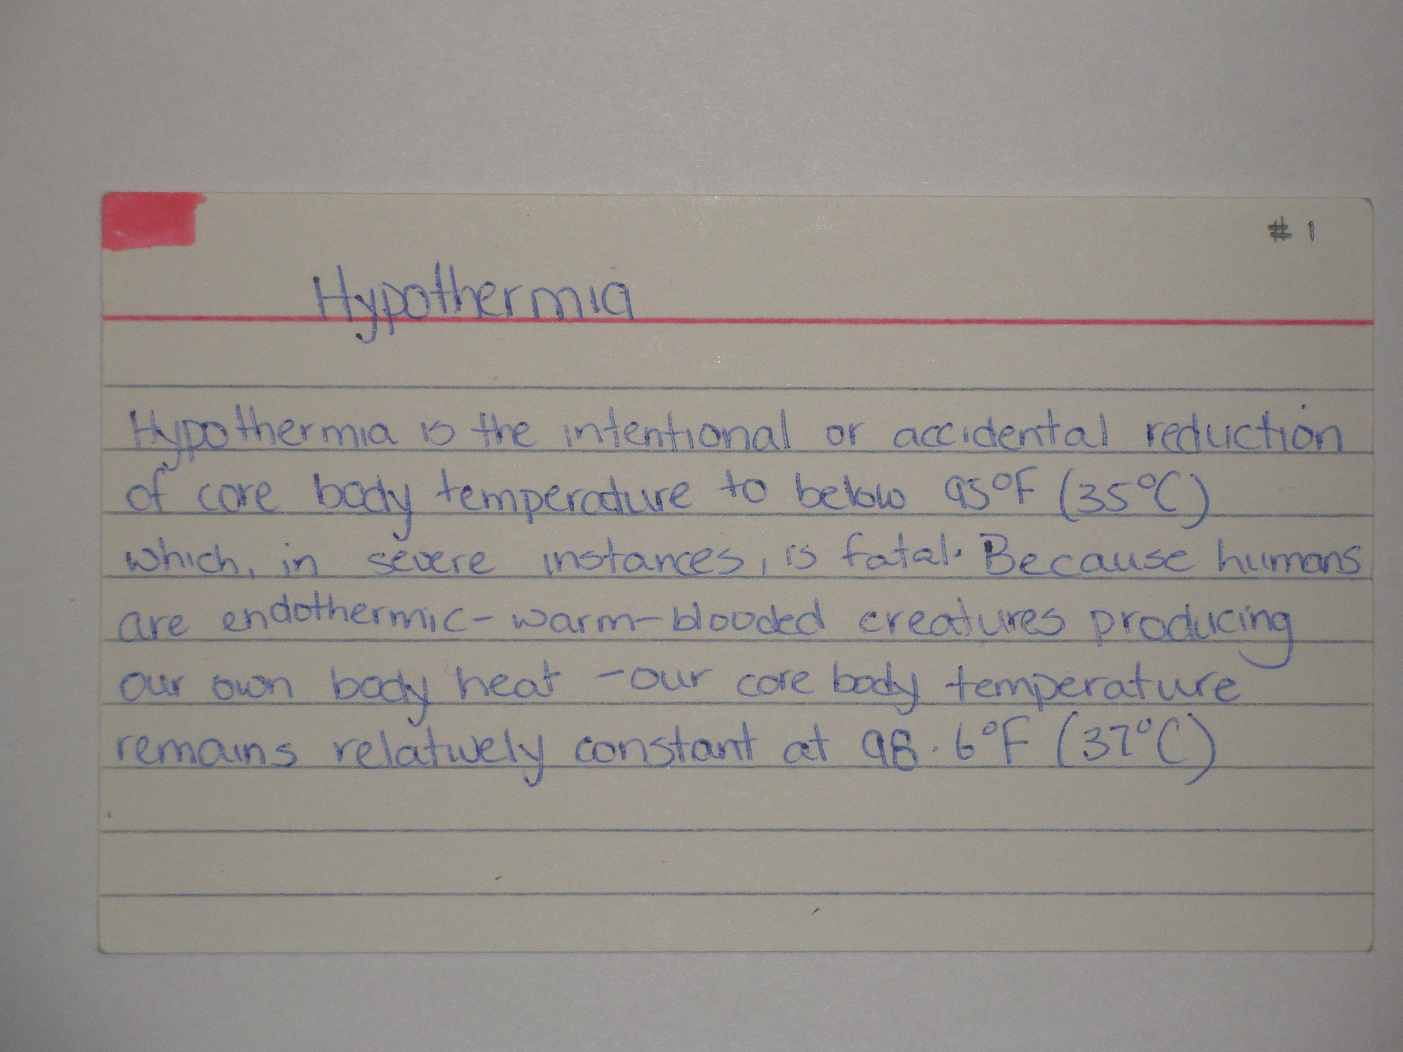 # 1
Hypothermia
Hypothermia is the intentional or accidental reduction
of core body temperature to below 95°F (35°C)
which, in severe instances, is fatal. Because humans
are endothermic - warm-blooded creatures producing
our own body heat - our core body temperature
remains relatively constant at 98.6°F (37°C)